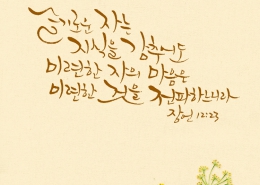 슬기로운 자는
지식을 감추어도
미련한 자의 마음은
미련한 것을 전파하느니라
잠언 12:23